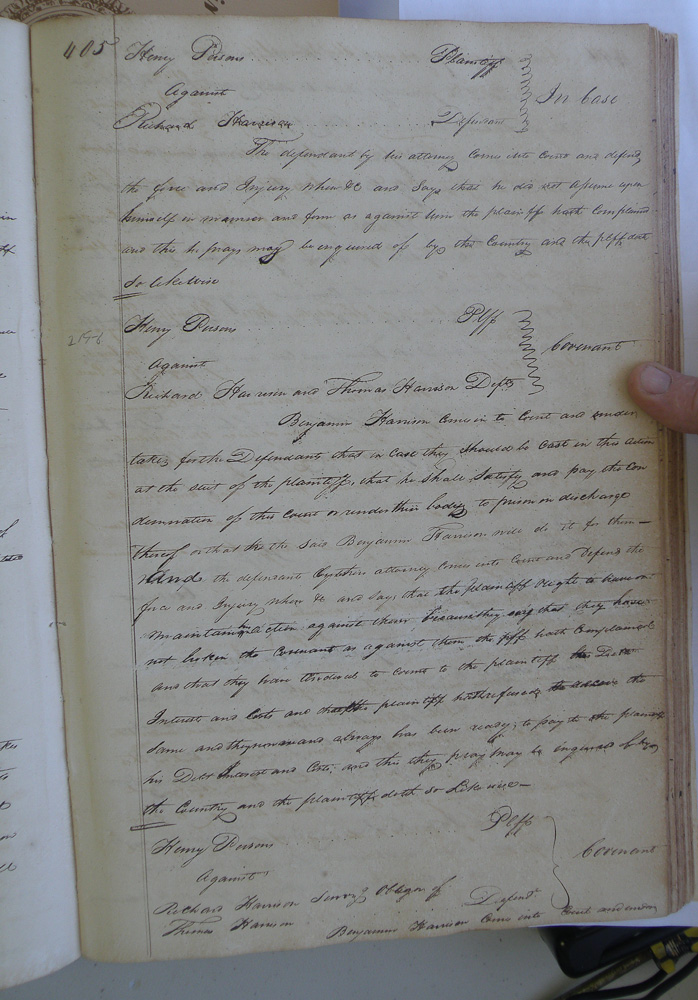 405
Henry Persons Plaintiff
Against In Case
Richard Harrison Defendant
The defendant by his attorney Comes into Court and defends
the force and Injury when &c and Says that he did not assume upon
himself in manner and form as against him the plaintiff hath Complained
and this he prays may be enquired of by the Country and the plff doth
So likewise
Henry Persons Plff
Against Covenant
Richard Harrison and Thomas Harrison Defts
Benjamin Harrison Comes in to Court and under
takes for the Defendant that in Case they should be Cast in this action
at the suit of the plaintiff, that he shall Satisfy and pay the Con
demnation of the Court or render their bodies to prison on discharge
thereof or that he the said Benjamin Harrison will do it for them —
And the defendants by their attorney Comes into Court and Defend the
force and Injury when &c and Say that the plaintiff Ought to have or
maintain action against them because they say that they have
not broken the Covenant as against them the plff hath Complained
and that they have tendered to Court to the plaintiff the Debt
Interest and Costs and that the plaintiff hath refused to receive the
Same and they now are and always has been ready to pay to the plaintiff
his Debt Interest and Costs; and this they pray may be enquired of by
the Country and the plaintiff doth so Likewise —
Henry Persons Plff
Against Covenant
Richard Harrison Obligor of Defend.t
Thomas Harrison Benjamin Harrison Comes into Court and under